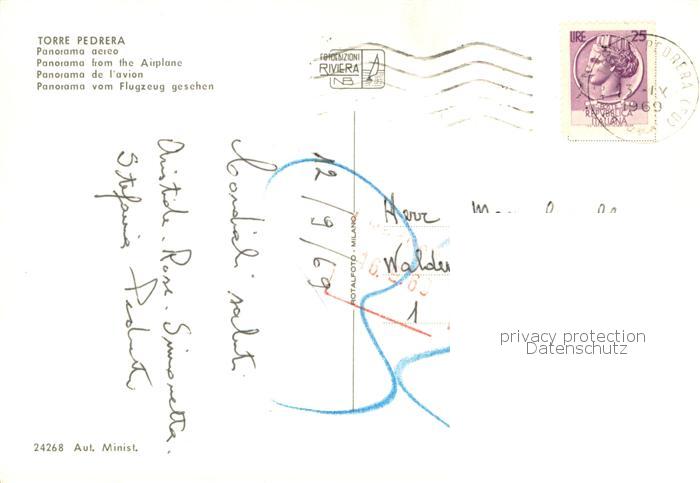 TORRE PEDRERA
Panorama aereo
Panorama from the Airplane
Panorama de l'avion
Panorama vom Flugzeug gesehen
FOTOEDIZIONI
RIVIERA
LIRE 25
13 -IX
1969
REPVBBLICA
ITALIANA
12/9/69
Cordiali saluti
Aristide. Rosa. Simonetta.
Stefania
ROTALFOTO - MILANO
Herr
1
privacy protection
Datenschutz
24268 Aut. Minist.